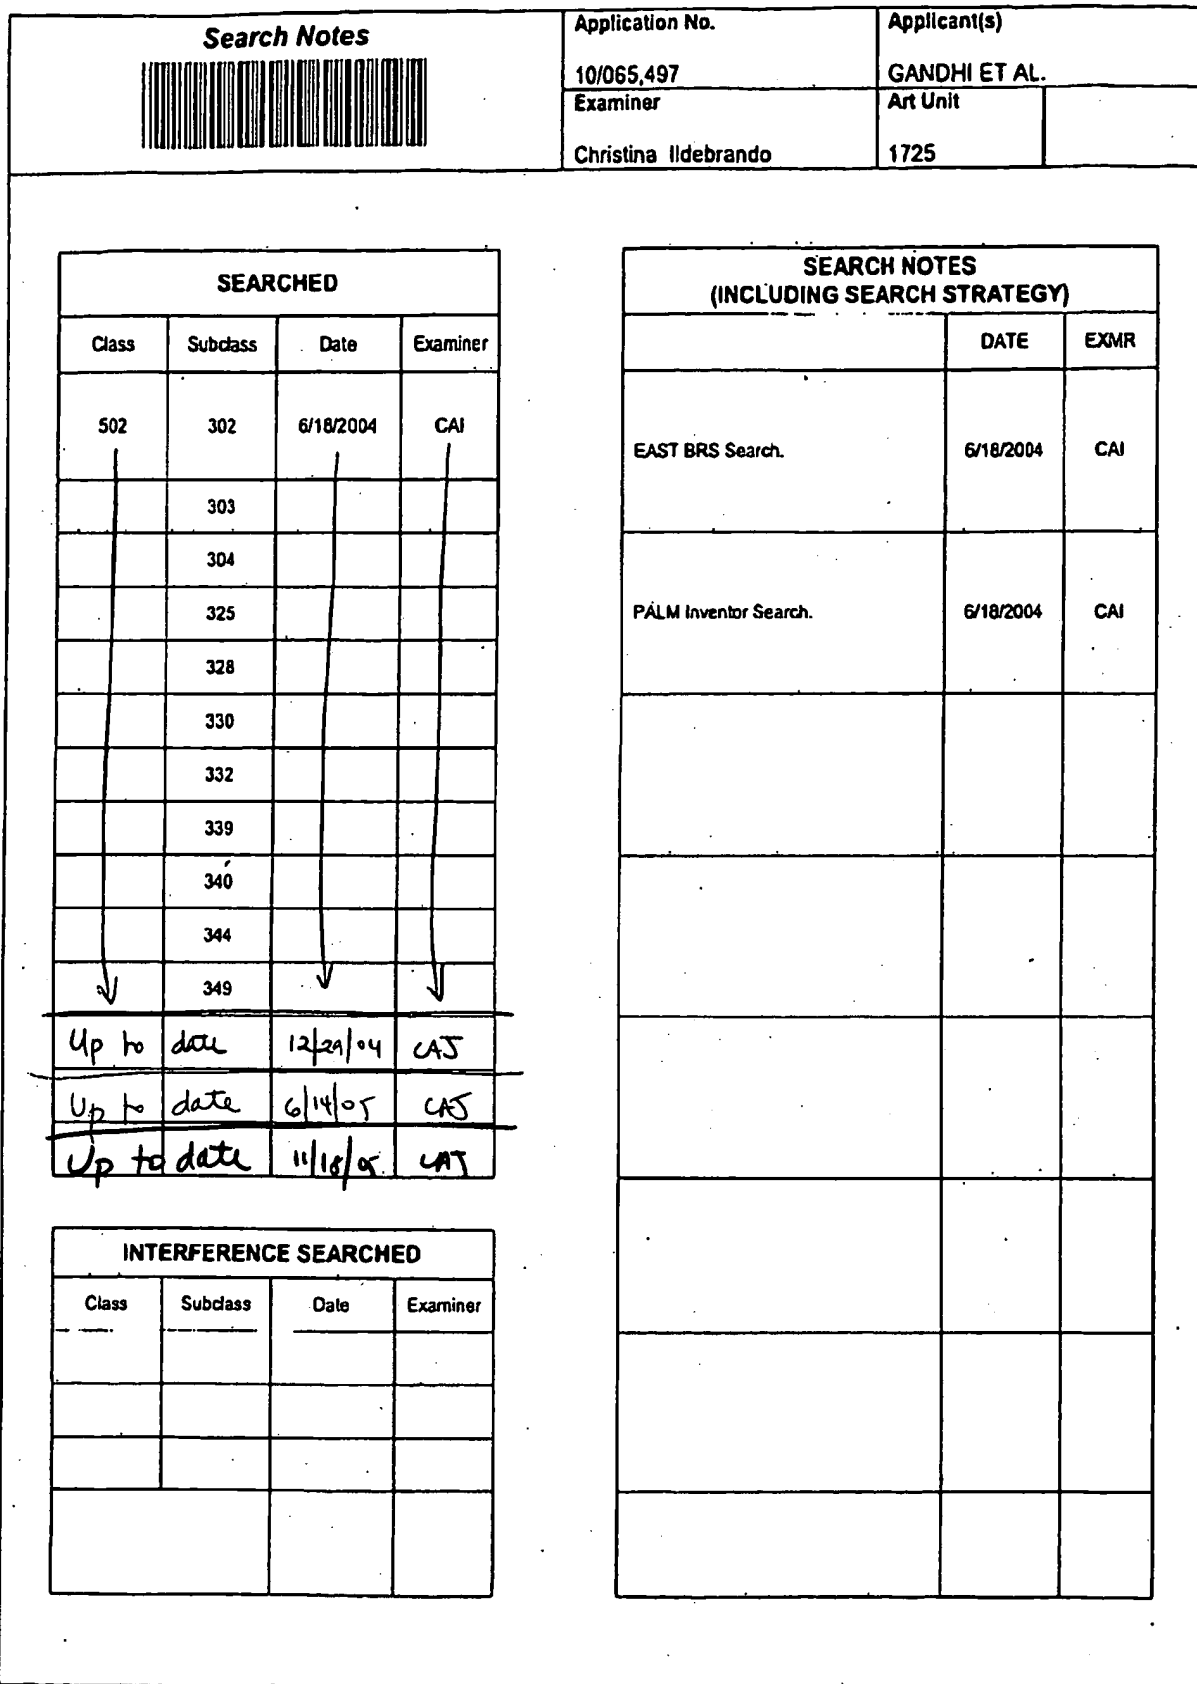 Search Notes
Application No.
Applicant(s)
10/065,497
GANDHI ET AL.
Examiner
Art Unit
Christina Ildebrando
1725
SEARCHED
Class Subclass Date Examiner
502 302 6/18/2004 CAI
303
304
325
328
330
332
339
340
344
349
Up to date 12/29/04 CAI
Up to date 6/14/05 CAI
Up to date 11/18/05 CAI
INTERFERENCE SEARCHED
Class Subclass Date Examiner
SEARCH NOTES
(INCLUDING SEARCH STRATEGY)
DATE EXMR
EAST BRS Search. 6/18/2004 CAI
PALM Inventor Search. 6/18/2004 CAI